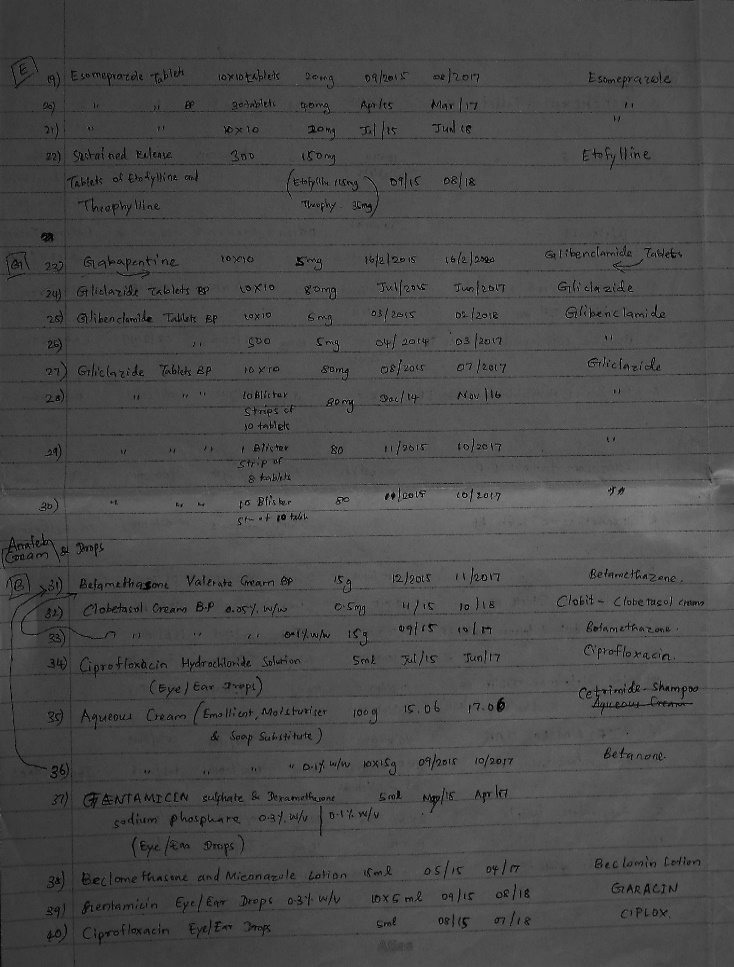 E
19) Esomeprazole Tablets 10x10 tablets 20mg 09/2015 08/2017 Esomeprazole
20) " " BP tablets Apr/15 Mar/17 "
21) " " 10x10 20mg Jul/15 Jun/18 "
22) Sustained Release 300 150mg Etofylline
Tablets of Etofylline and (Etofylline 115mg 09/15 08/18
Theophylline Theophy. 35mg)
G
23) Gabapentine 10x10 5mg 16/2/2015 16/2/2020 Glibenclamide Tablets
24) Gliclazide Tablets BP 10x10 80mg Jul/2015 Jun/2017 Gliclazide
25) Glibenclamide Tablets BP 10x10 5mg 03/2015 02/2018 Glibenclamide
26) " 500 5mg 04/2014 03/2017 "
27) Gliclazide Tablets BP 10x10 80mg 08/2015 07/2017 Gliclazide
28) " " " 10 Blister 80mg Dec/14 Nov/16 "
Strips of
10 tablets
29) " " " 1 Blister 80 11/2015 10/2017 "
Strip of
8 tablets
30) " " " 10 Blister 80 11/2015 10/2017 "
of 10 tabl
Cream & Drops
B 31) Betamethasone Valerate Cream BP 15g 12/2015 11/2017 Betamethazone.
32) Clobetasol Cream B.P 0.05% w/w 0.5mg 11/15 10/18 Clobit - Clobetasol cream
33) " " " 0.1% w/w 15g 09/15 10/17 Betamethazone.
34) Ciprofloxacin Hydrochloride Solution 5ml Jul/15 Jun/17 Ciprofloxacin.
(Eye/Ear Drops)
35) Aqueous Cream (Emollient, Moisturiser 100g 15.06 17.06 Cetrimide-Shampoo
& Soap Substitute) Aqueous Cream
36) " " " " 0.1% w/w 10x15g 09/2015 10/2017 Betanone.
37) GENTAMICIN sulphate & Dexamethsone 5ml May/15 Apr/17
sodium phosphare 0.3% w/v | 0.1% w/v
(Eye/Ear Drops)
38) Beclomethasone and Miconazole Lotion 15ml 05/15 04/17 Beclomin Lotion
39) Gentamicin Eye/Ear Drops 0.3% w/v 10x5ml 09/15 08/18 GARACIN
40) Ciprofloxacin Eye/Ear Drops 5ml 08/15 07/18 CIPLOX.